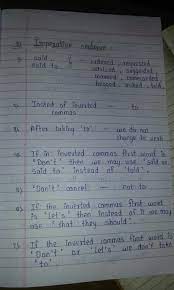 Imperative sentence :-
1) said } - ordered, requested
said to - advised, suggested
warned, commanded
begged, asked, told.
2) Instead of inverted - to
commas
3) After taking 'to' - we do not
change the verb
4) If in inverted commas first word is
"Don't" then we may use "said or
said to" instead of "told".
5) "Don't" cancel - not to
6) If the inverted commas first word
is "Let's" then instead of it we may
use "that they should".
7) If the inverted commas first word is
"Don't" or "Let's" we don't take
"to"